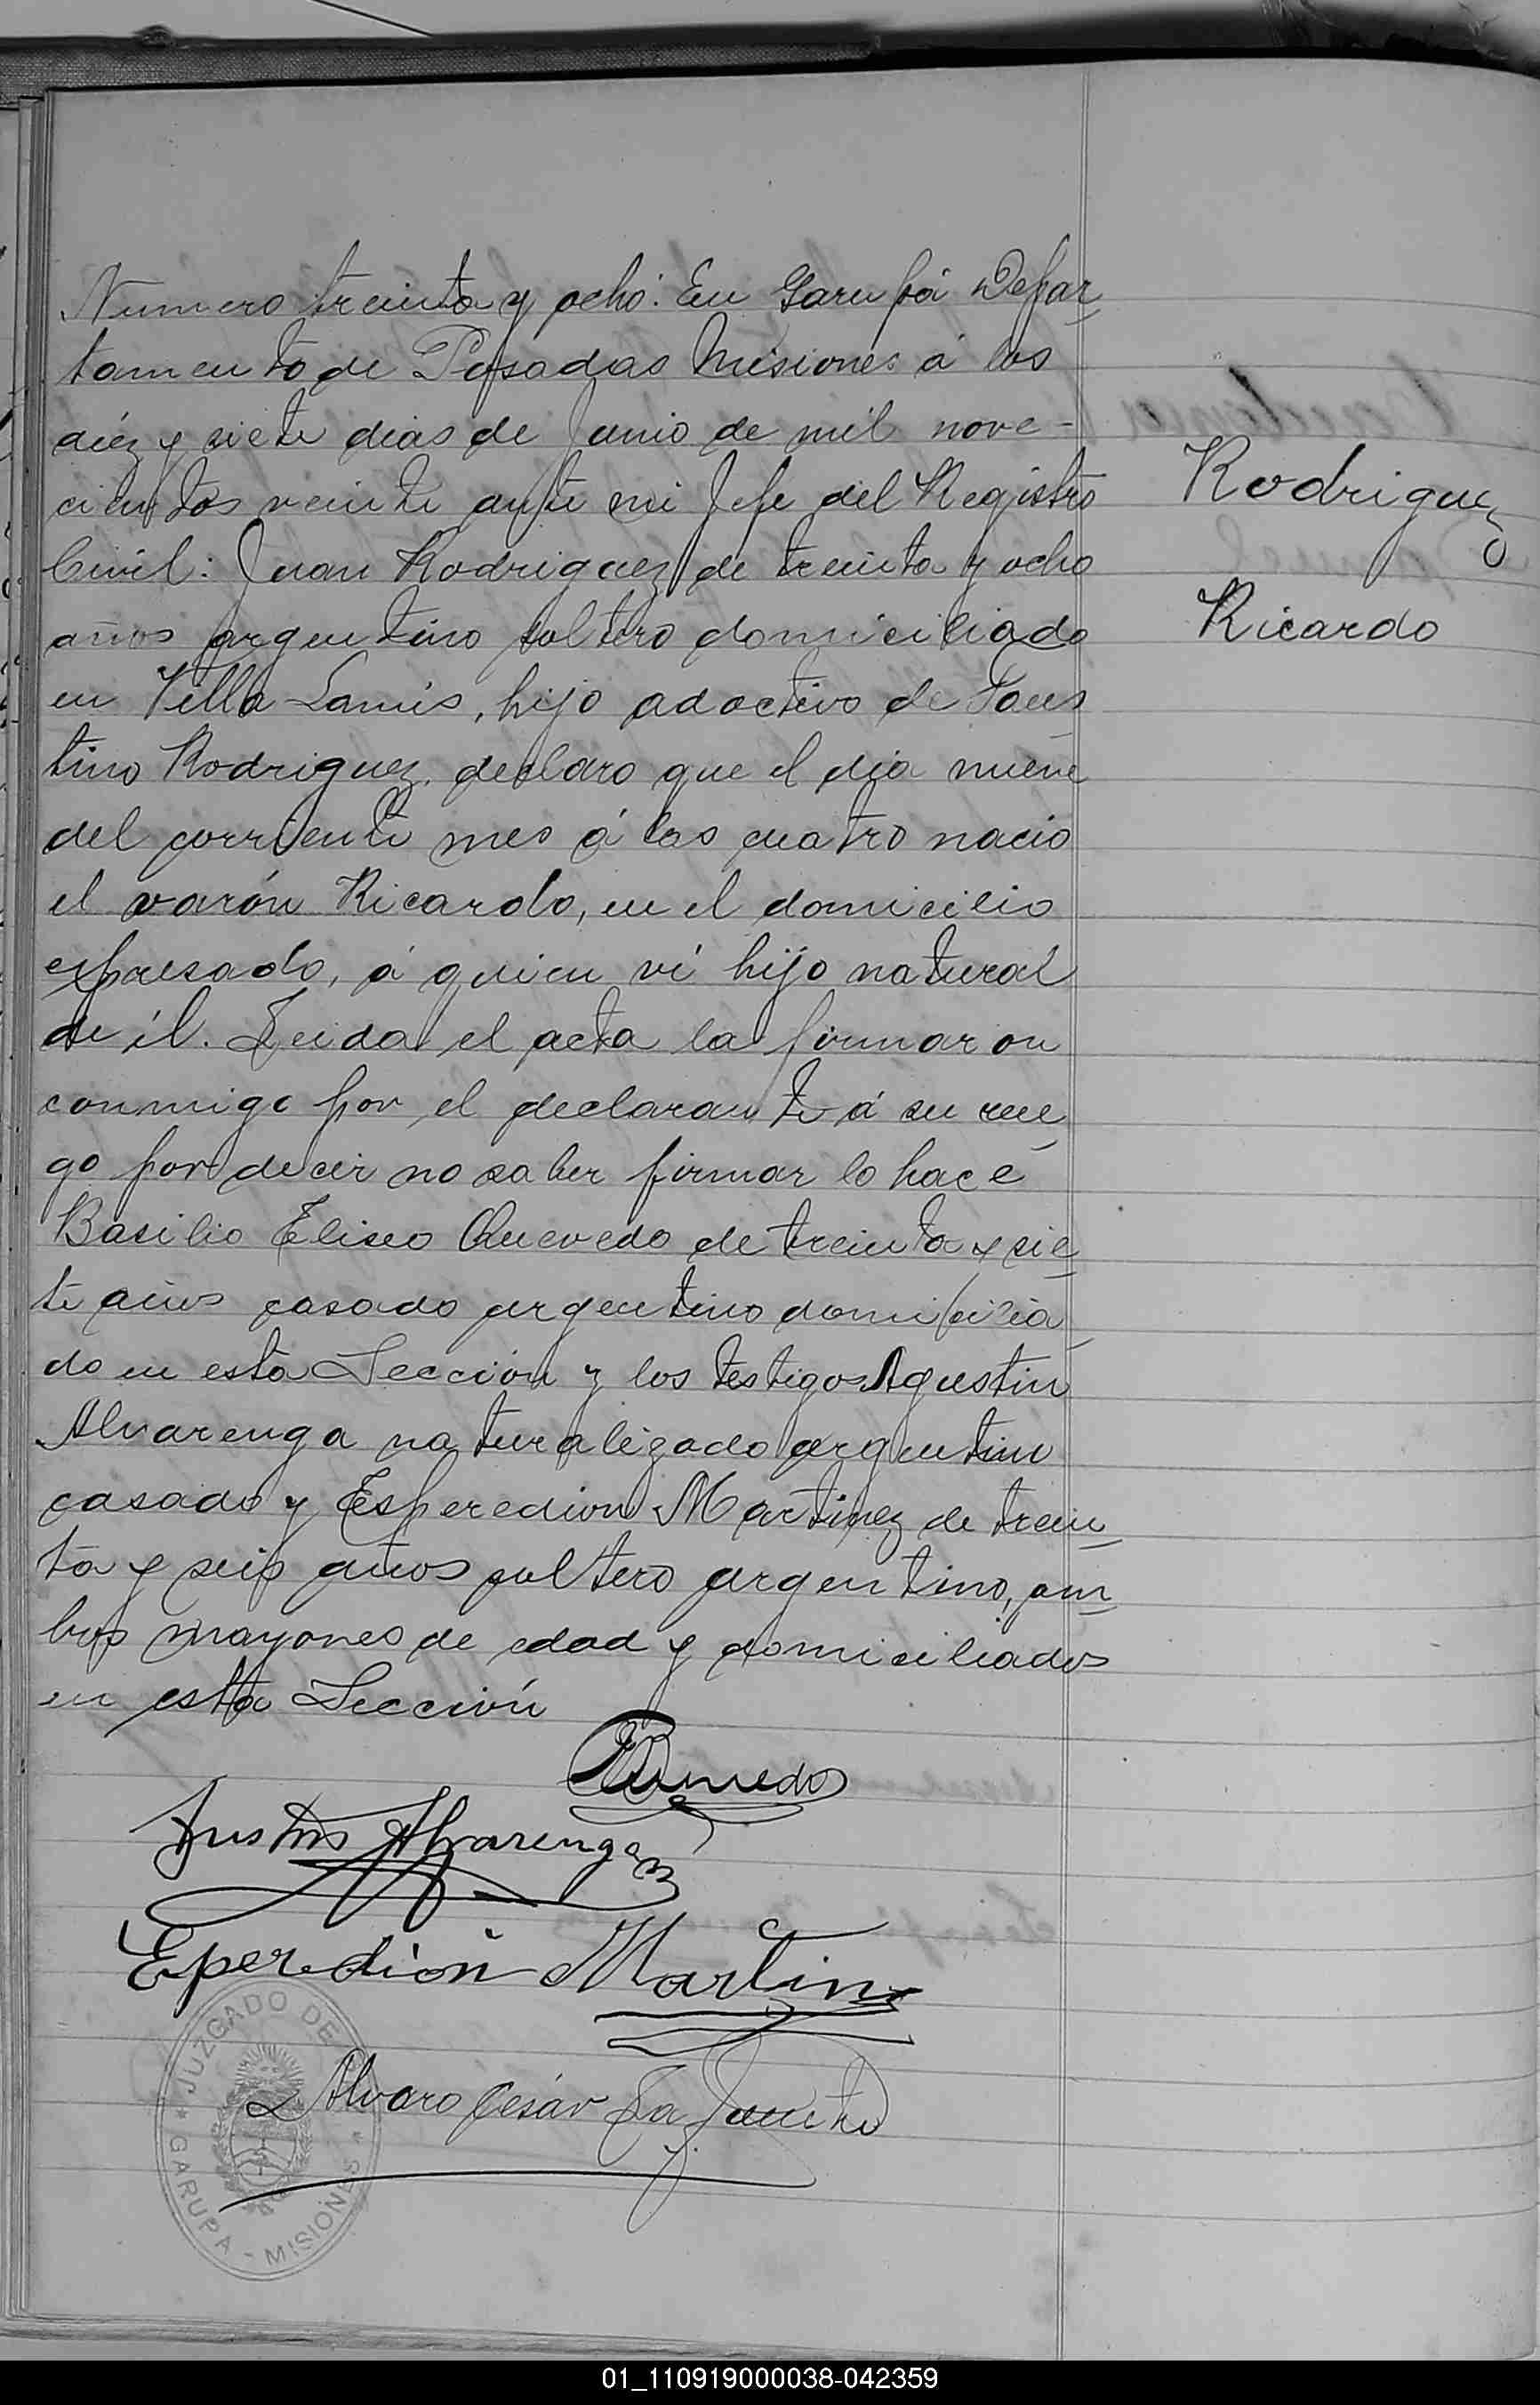 Numero treinta y ocho: En Garupá Depar-
tamento de Posadas Misiones á los
diéz y siete dias de Junio de mil nove-
cientos veinte ante mi Jefe del Registro
Civil: Juan Rodriguez de treinta y ocho
años argentino soltero domiciliado
en Villa Lanús, hijo adoctivo de Faus
tino Rodriguez, declaro que el dia nueve
del corriente mes á las cuatro nació
el varón Ricardo, en el domicilio
espresado, á quien ví hijo natural
de él. Leida el acta la firmaron
conmigo por el declarante á su rue
go por decir no saber firmar lo hace
Basilio Eliseo Quevedo de treinta y sie
te años casado argentino domicilia
do en esta Sección y los testigos Agustin
Alvarenga naturalizado argentino
casado y Esperedion Martinez de trein
ta y seis años soltero argentino, am
bos mayores de edad y domiciliados
en esta Sección
Rodriguez
Ricardo
Alvarenga
Eperedión Martinz
Alvaro César
JUZGADO DE
GARUPA - MISIONES
01_110919000038-042359